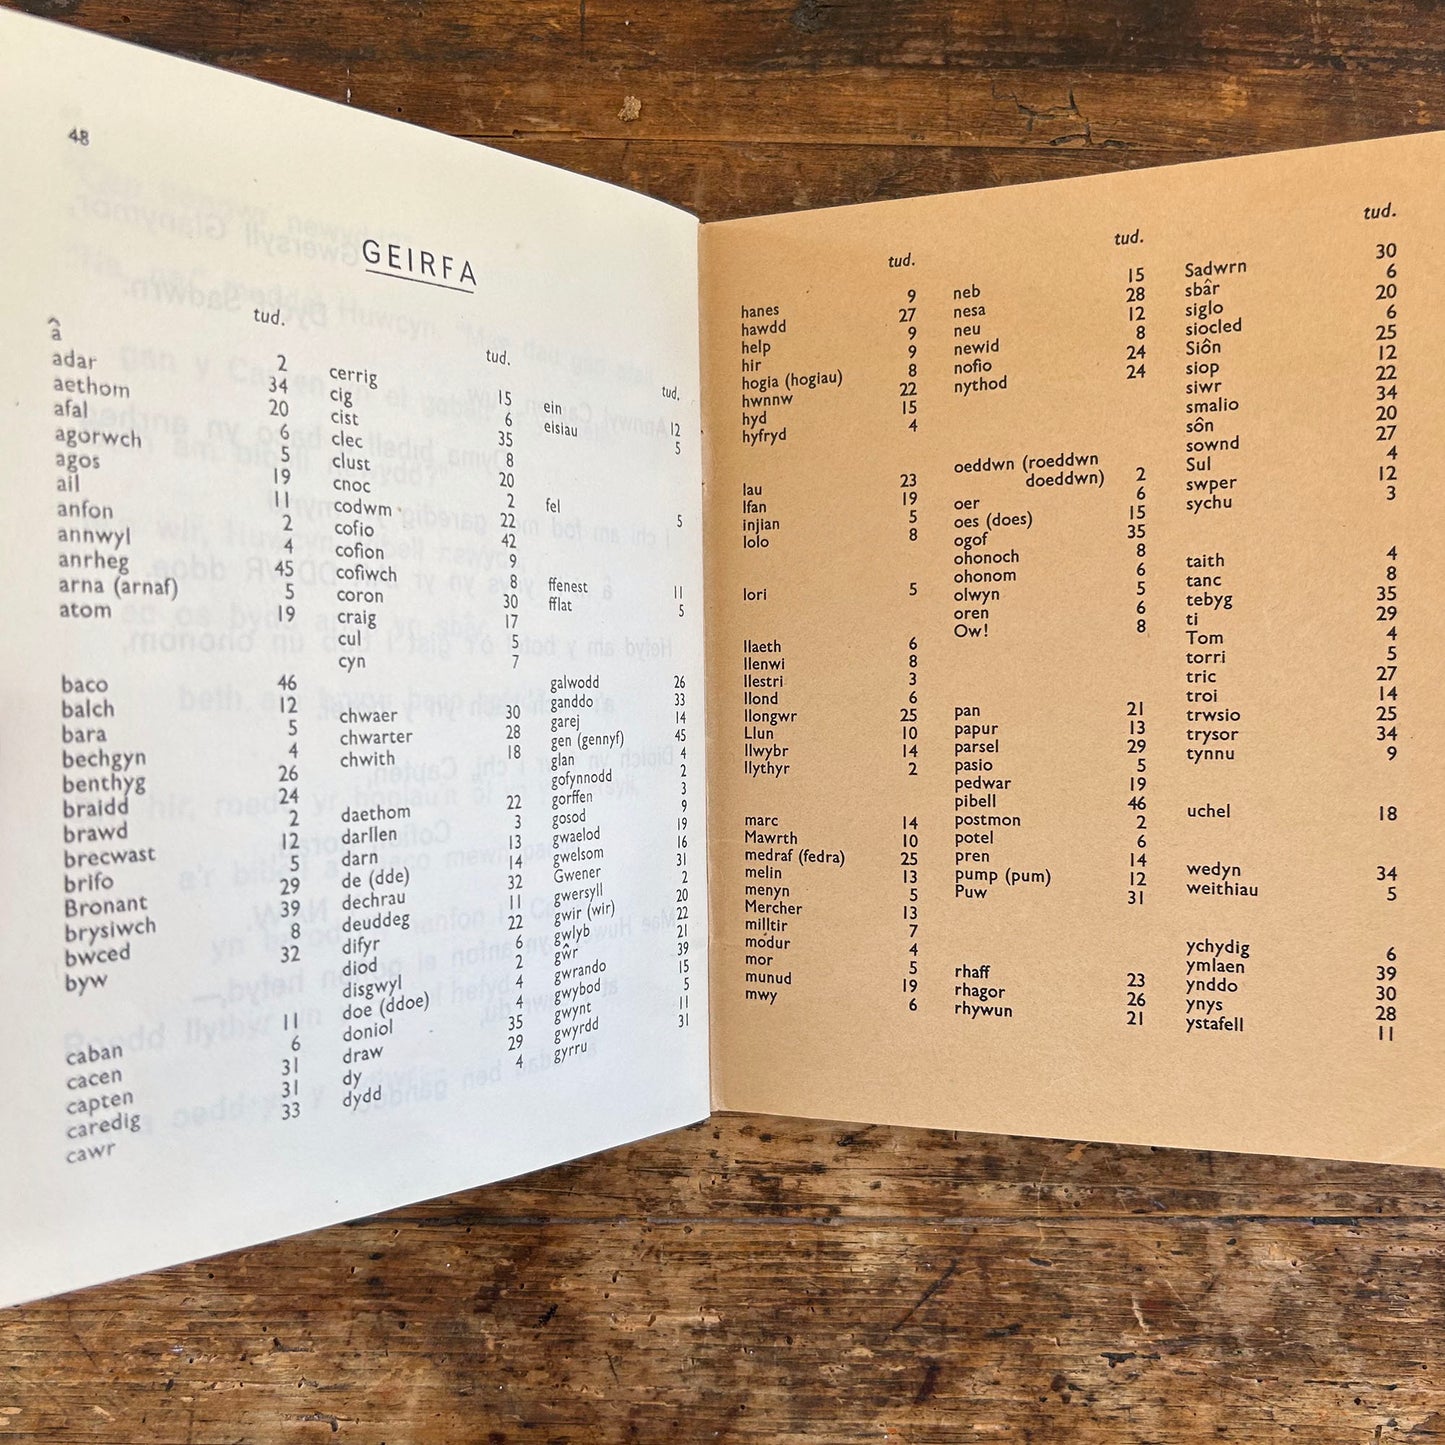 48
GEIRFA
tud.
â 2
adar 34
aethom 20
afal 6
agorwch 5
agos 19
ail 11
anfon 2
annwyl 4
anrheg 45
arna (arnaf) 5
atom 19
baco 46
balch 12
bara 5
bechgyn 4
benthyg 26
braidd 24
brawd 2
brecwast 12
brifo
Bronant 29
brysiwch 39
bwced 8
byw 32
caban 11
cacen 6
capten 31
caredig 31
cawr 33
tud.
cerrig 15
cig 6
cist 35
clec 8
clust 20
cnoc 2
codwm 22
cofio 42
cofion 9
cofiwch 8
coron 30
craig 17
cul 5
cyn 7
chwaer 30
chwarter 28
chwith 18
daethom 22
darllen 3
darn 13
de (dde) 14
dechrau 32
deuddeg 11
difyr 22
diod 6
disgwyl 2
doe (ddoe) 4
doniol 4
draw 35
dy 29
dydd 4
tud.
ein 12
eisiau 5
fel 5
ffenest 11
fflat 5
galwodd 26
ganddo 33
garej 14
gen (gennyf) 45
glan 4
gofynnodd 2
gorffen 3
gosod 9
gwaelod 19
gwelsom 16
Gwener 31
gwersyll 2
gwir (wir) 20
gwlyb 22
gŵr 21
gwrando 39
gwybod 15
gwynt 5
gwyrdd 11
gyrru 31
tud.
hanes 9
hawdd 27
help 9
hir 9
hogia (hogiau) 8
hwnnw 22
hyd 15
hyfryd 4
Iau 23
Ifan 19
injian 5
Iolo 8
lori 5
llaeth 6
llenwi 8
llestri 3
llond 6
llongwr 25
Llun 10
llwybr 14
llythyr 2
marc 14
Mawrth 10
medraf (fedra) 25
melin 13
menyn 5
Mercher 13
milltir 7
modur 4
mor 5
munud 19
mwy 6
tud.
neb 15
nesa 28
neu 12
newid 8
nofio 24
nythod 24
oeddwn (roeddwn
doeddwn) 2
oer 6
oes (does) 15
ogof 35
ohonoch 8
ohonom 6
olwyn 5
oren 6
Ow! 8
pan 21
papur 13
parsel 29
pasio 5
pedwar 19
pibell 46
postmon 2
potel 6
pren 14
pump (pum) 12
Puw 31
rhaff 23
rhagor 26
rhywun 21
tud.
Sadwrn 30
sbâr 6
siglo 20
siocled 6
Siôn 25
siop 12
siwr 22
smalio 34
sôn 20
sownd 27
Sul 4
swper 12
sychu 3
taith 4
tanc 8
tebyg 35
ti 29
Tom 4
torri 5
tric 27
troi 14
trwsio 25
trysor 34
tynnu 9
uchel 18
wedyn 34
weithiau 5
ychydig 6
ymlaen 39
ynddo 30
ynys 28
ystafell 11